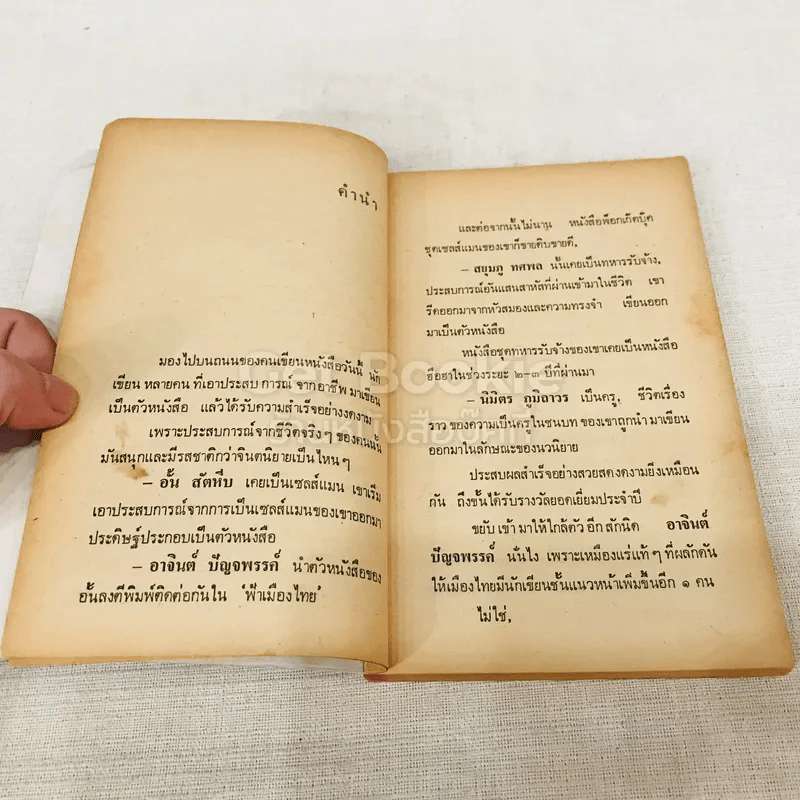 คำนำ
มองไปบนถนนของคนเขียนหนังสือวันนี้ นัก
เขียน หลายคน ที่เอาประสบ การณ์ จากอาชีพ มาเขียน
เป็นตัวหนังสือ แล้วได้รับความสำเร็จอย่างงดงาม
เพราะประสบการณ์จากชีวิตจริงๆ ของคนนั้น
มันสนุกและมีรสชาติกว่าจินตนิยายเป็นไหนๆ
– อั้น สัตหีบ เคยเป็นเซลส์แมน เขาเริ่ม
เอาประสบการณ์จากการเป็นเซลส์แมนของเขาออกมา
ประดิษฐ์ประกอบเป็นตัวหนังสือ
– อาจินต์ ปัญจพรรค์ นำตัวหนังสือของ
อั้นลงตีพิมพ์ติดต่อกันใน 'ฟ้าเมืองไทย'
และต่อจากนั้นไม่นาน หนังสือพ็อกเก็ตบุ๊ค
ชุดเซลส์แมนของเขาก็ขายดิบขายดี.
– สยุมภู ทศพล นั้นเคยเป็นทหารรับจ้าง.
ประสบการณ์อันแสนสาหัสที่ผ่านเข้ามาในชีวิต เขา
รีดออกมาจากหัวสมองและความทรงจำ เขียนออก
มาเป็นตัวหนังสือ
หนังสือชุดทหารรับจ้างของเขาเคยเป็นหนังสือ
ฮือฮาในช่วงระยะ ๒–๓ ปีที่ผ่านมา
– นิมิตร ภูมิถาวร เป็นครู. ชีวิตเรื่อง
ราว ของความเป็นครูในชนบท ของเขาถูกนำ มาเขียน
ออกมาในลักษณะของนวนิยาย
ประสบผลสำเร็จอย่างสวยสดงดงามยิ่งเหมือน
กัน ถึงขั้นได้รับรางวัลยอดเยี่ยมประจำปี
ขยับ เข้า มาให้ใกล้ตัว อีก สักนิด อาจินต์
ปัญจพรรค์ นั่นไง เพราะเหมืองแร่แท้ๆ ที่ผลักดัน
ให้เมืองไทยมีนักเขียนชั้นแนวหน้าเพิ่มขึ้นอีก ๑ คน
ไม่ใช่.